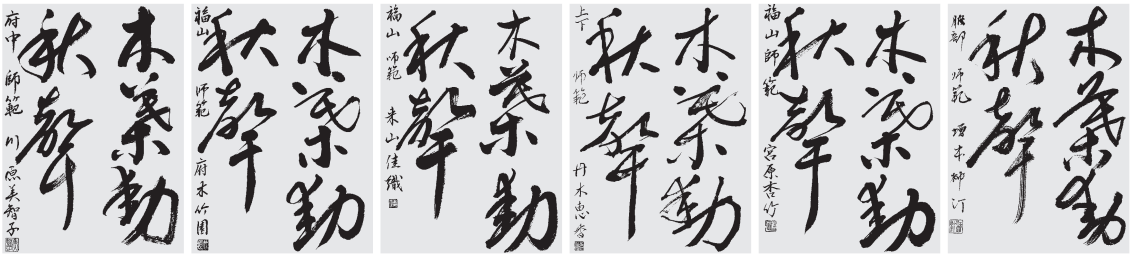 木葉動
秋聲
府中 師範 川原美智子
木葉動
秋聲
福山 師範 府木竹園
木葉動
秋聲
福山 師範 来山佳織
木葉動
秋聲
上下 師範 丹木恵香
木葉動
秋聲
福山 師範 宮原杏竹
木葉動
秋聲
服部 師範 坂本柳汀